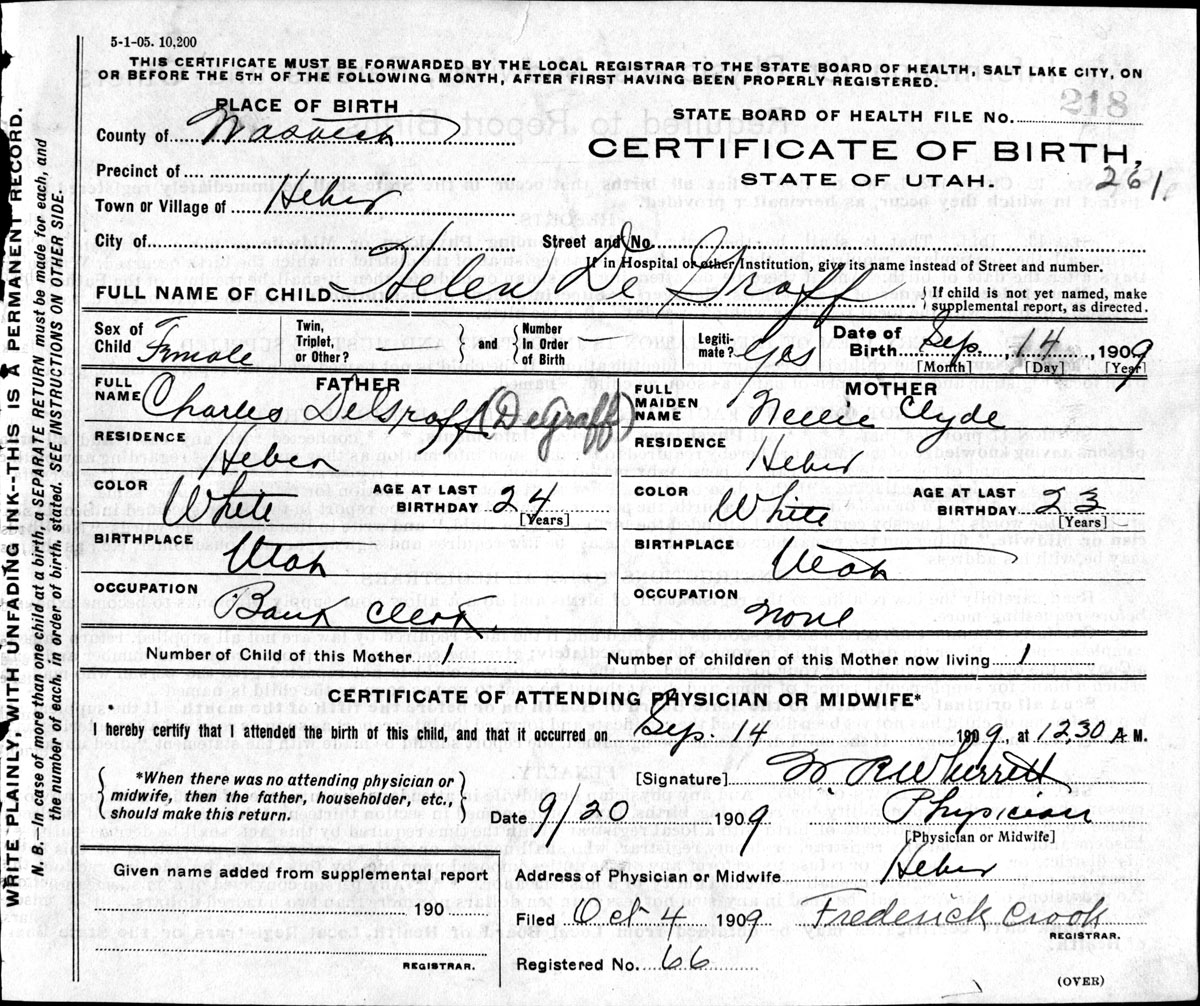 5-1-05. 10,200
THIS CERTIFICATE MUST BE FORWARDED BY THE LOCAL REGISTRAR TO THE STATE BOARD OF HEALTH, SALT LAKE CITY, ON
OR BEFORE THE 5TH OF THE FOLLOWING MONTH, AFTER FIRST HAVING BEEN PROPERLY REGISTERED.
WRITE PLAINLY, WITH UNFADING INK--THIS IS A PERMANENT RECORD.
N. B.—In case of more than one child at a birth, a SEPARATE RETURN must be made for each, and
the number of each, in order of birth, stated. SEE INSTRUCTIONS ON OTHER SIDE.
PLACE OF BIRTH
County of Wasatch
Precinct of
Town or Village of Heber
City of
218
STATE BOARD OF HEALTH FILE NO.
CERTIFICATE OF BIRTH,
STATE OF UTAH. 261
Street and No.
If in Hospital or other Institution, give its name instead of Street and number.
FULL NAME OF CHILD Helen De Graff { If child is not yet named, make
supplemental report, as directed.
Sex of Child Female
Twin, Triplet, or Other? — and { Number In Order of Birth
Legitimate? Yes
Date of Birth Sep. 14, 1909
[Month] [Day] [Year]
FATHER
FULL NAME Charles DeGraff (DeGraff)
RESIDENCE Heber
COLOR White AGE AT LAST BIRTHDAY 24 [Years]
BIRTHPLACE Utah
OCCUPATION Bank Clerk
MOTHER
FULL MAIDEN NAME Nellie Clyde
RESIDENCE Heber
COLOR White AGE AT LAST BIRTHDAY 23 [Years]
BIRTHPLACE Utah
OCCUPATION None
Number of Child of this Mother 1 Number of children of this Mother now living 1
CERTIFICATE OF ATTENDING PHYSICIAN OR MIDWIFE*
I hereby certify that I attended the birth of this child, and that it occurred on Sep. 14 1909, at 12,30 A M.
{ *When there was no attending physician or
midwife, then the father, householder, etc.,
should make this return. }
[Signature] W R Wherritt
Date 9/20 1909 Physician
[Physician or Midwife]
Given name added from supplemental report
190
REGISTRAR.
Address of Physician or Midwife Heber
Filed Oct 4 1909 Frederick Crook
REGISTRAR.
Registered No. 66
(OVER)